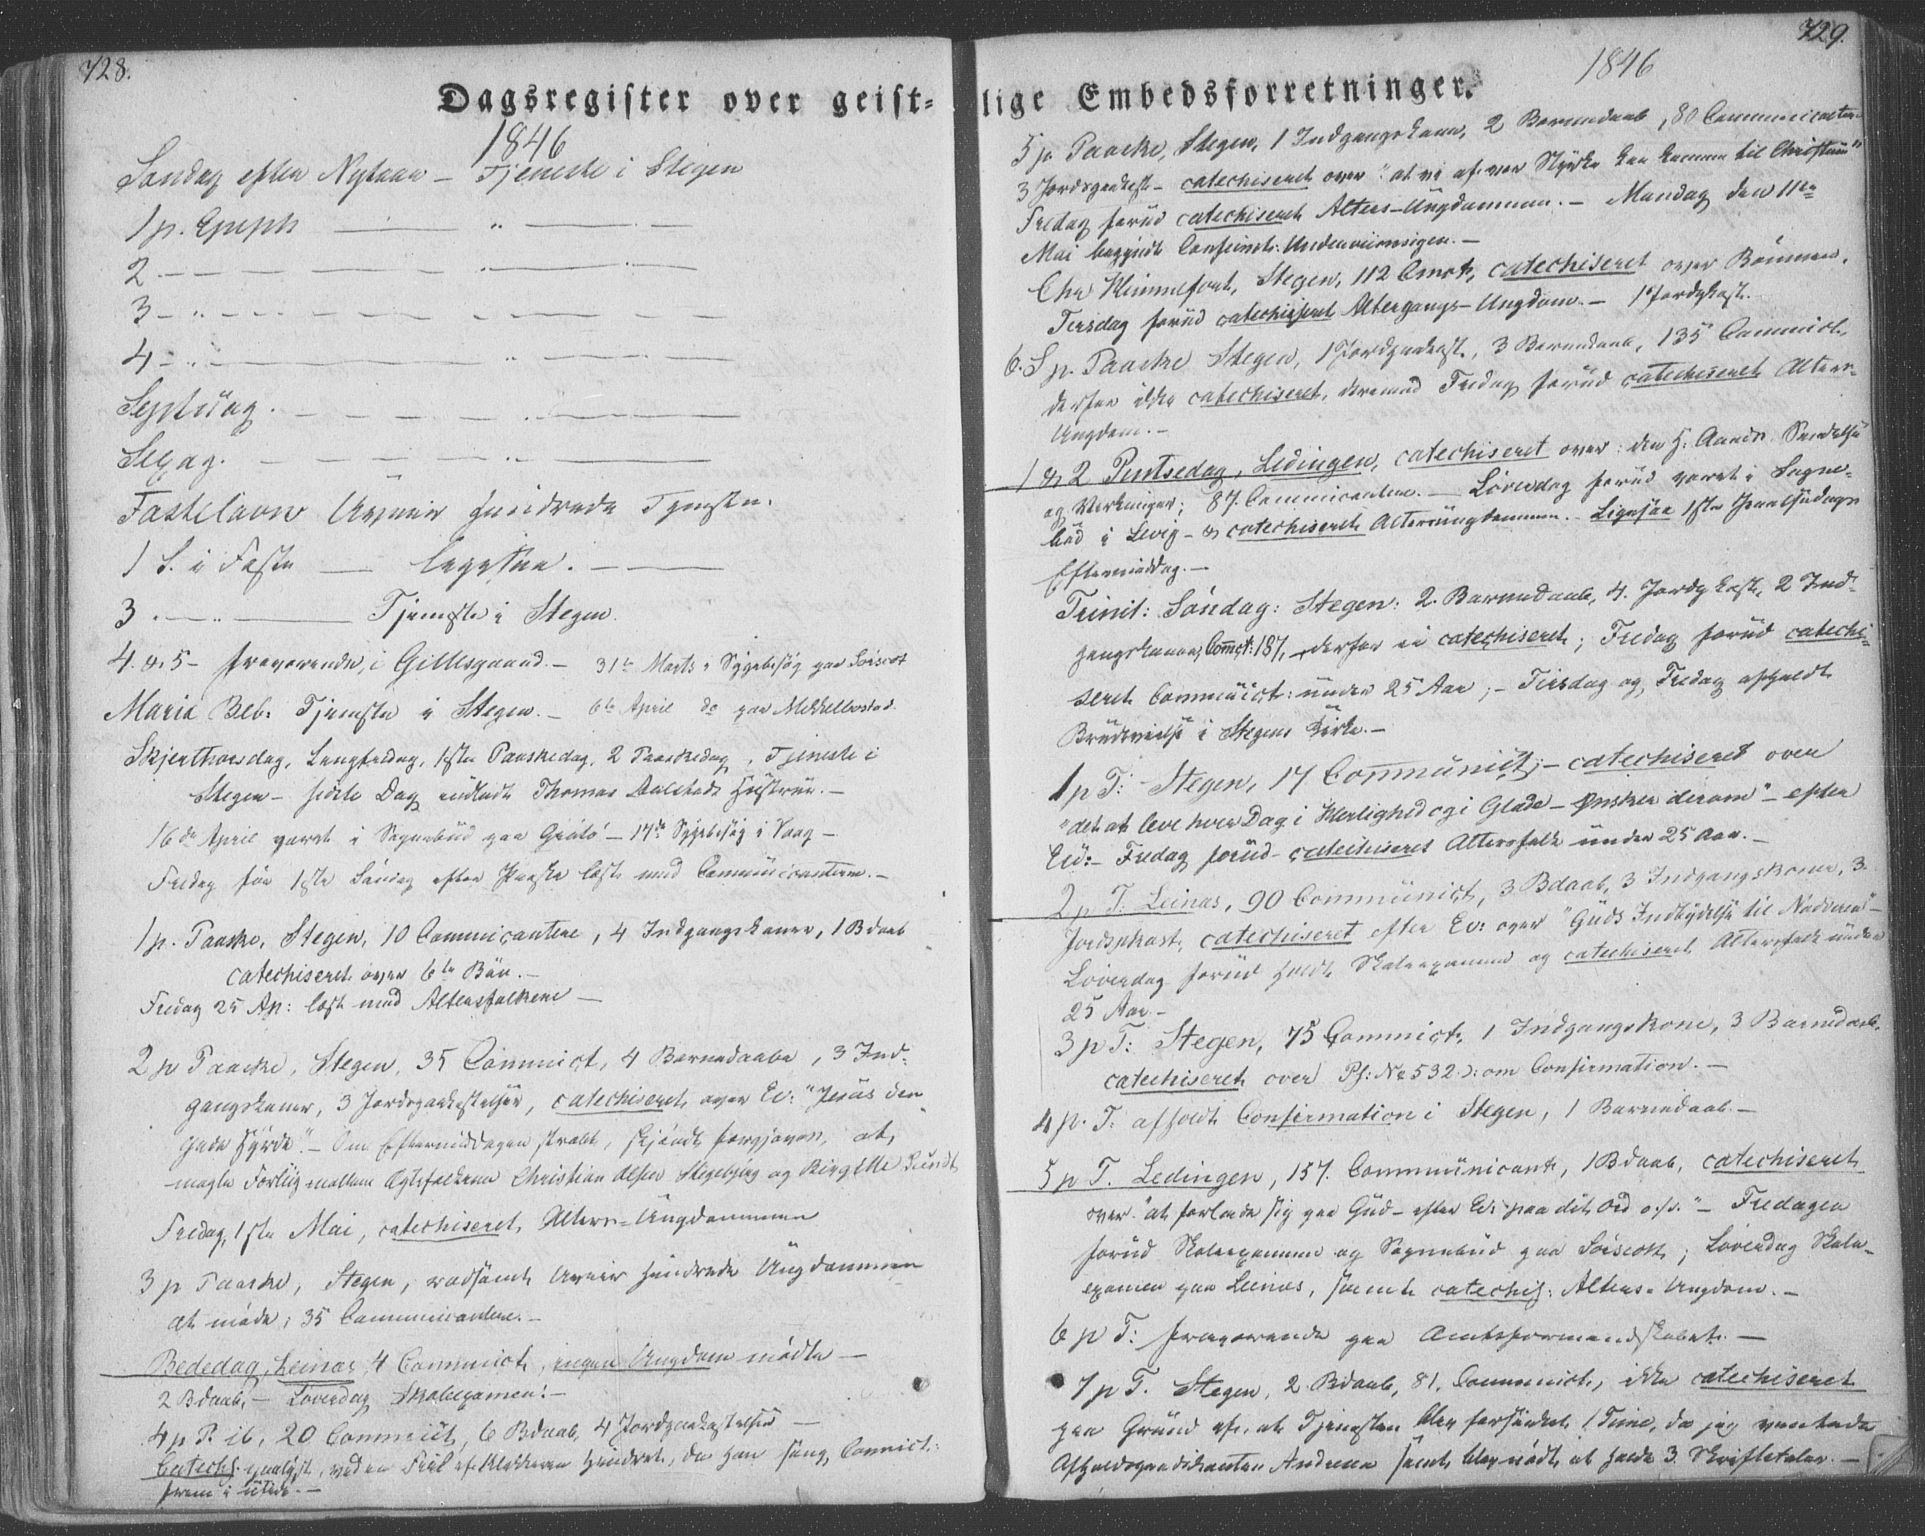 728.
Dagsregister over geist-
1846
Søndag efter Nytaar — Tjeneste i Stegen
1 p. Epeph — „ —
2 — — „ —
3 — „ — — „ —
4 — „ — — „ —
Septuag. — — „ —
Sexag. — — „ —
Fastelavn Uveir hindrede Tjenste.
1 S. i Faste —
3 — „ — Tjenste i Stegen.
4. & 5 — fraværende i Gildesgaard. — 31te Marts i Sygebesøg paa
Mariæ Beb. Tjenste i Stegen. — 6te April do paa Mikkelbostad.
Skjerthorsdag, Langfredag, 1ste Paaskedag, 2 Paaskedag, Tjeneste i
Stegen — sidste Dag indledt Thomas Hustrue. —
16de April været i Sognebud paa Grøtø — 17de Sygebesøg i Vaag —
Fredag før 1ste Søndag efter Paaske læst med Communicanterne. —
1 p. Paaske, Stegen, 10 Commicantere, 4 Indgangskoner, 1 Bdaab
catechiseret over 6te Bøn. —
Fredag 25 Ap: læst med Altersfolkene —
2 p Paaske, Stegen, 35 Commict, 4 Barnedaabe, 3 Ind-
gangskoner, 3 Jordspaakastelser, catechiseret over Ev: "Jesus den
gode Hyrde". — Om Eftermiddagen stræbt, skjøndt forgjæves, at
mægle Forliig mellem Egtefolkene Christian Olsen og Birgitte
Fredag, 1ste Mai, catechiseret Alters-Ungdommen
3 p Paaske, Stegen, Uveir hindrede Ungdommen
at møde; 35 Communicantere. —
Bededag, Leines, 4 Commict, ingen Ungdom mødte —
2 Bdaab, — Løverdag Skoleexamen: —
4 p P. ib, 20 Commict, 6 Bdaab, 4 Jordpaakastelser —
Catech. ved en Feil af Klokkeren hindret, da han sang Commict.
frem i utide. —
729.
lige Embedsforretninger.
1846
5 p. Paaske, Stegen, 1 Indgangskone, 2 Barnedaab, 80 Communicanter
3 Jordspaakast — catechiseret over "at vi af vor Styrke kan komme til Christum"
Fredag forud catechiseret Alters-Ungdommen. — Mandag den 11te
Mai begyndt Confirmat: Underviisningen. —
Chr Himmelfart, Stegen, 112 Cmct, catechiseret over Bønnen,
Tirsdag forud catechiseret Altergangs-Ungdom. — 1 Jordpkast.
6. S p. Paaske Stegen, 1 Jordpaakast, 3 Barnedaab, 135 Commict,
derfor ikke catechiseret, derimod Fredag forud catechiseret Alters-
Ungdom. —
1 & 2 Pintsedag, Ledingen, catechiseret over: den H. Aands Sendelse
og Virkninger; 87 Communicanter. — Løverdag forud været i Sogne-
bud i Levig — & catechiseret Altersungdommen. Ligesaa 1ste
Eftermiddag. —
Trinit: Søndag: Stegen: 2 Barnedaab, 4 Jordpkast, 2 Ind-
gangskoner, Commct: 187, derfor ei catechiseret; Fredag forud catechi-
seret Commict: under 25 Aar; — Tirsdag og Fredag afholdt
Brudevielse i Stegens Kirke. —
1 p T: Stegen, 17 Communict; — catechiseret over
"det at leve hver Dag i Herlighed og i Glæde — Ønsker derom" — efter
Ev: — Fredag forud — catechiseret Altersfolk under 25 Aar. —
2 p T. Leines, 90 Communict, 3 Bdaab, 3 Indgangskoner, 3
Jordspkast, catechiseret efter Ev: over "Guds Indbydelse til Nadveren" —
Løverdag forud holdt Skoleexamen og catechiseret Altersfolk under
25 Aar —
3 p T: Stegen, 75 Commict, 1 Indgangskone, 3 Barnedaab,
catechiseret over Ps: No 532 ɔ: om Confirmation. —
4 p. T: afholdt Confirmation i Stegen, 1 Barnedaab. —
5 p T. Ledingen, 157. Communicant, 1 Bdaab, catechiseret
over "at forlade sig paa Gud — efter Ev: paa dit Ord o.s.v." — Fredagen
forud Skoleexamen og Sognebud paa; Løverdag Skole-
examen paa Leines, samt catechis: Alters-Ungdom. —
6 p T: fraværende paa Amtsformandskabet. —
7 p T. Stegen, 2 Bdaab, 81. Communict, ikke catechiseret
paa Grund af, at Tjenesten blev forsinket 1 Time, da jeg ventede
Andreas samt blev nødt at holde 3 Skriftetaler. —